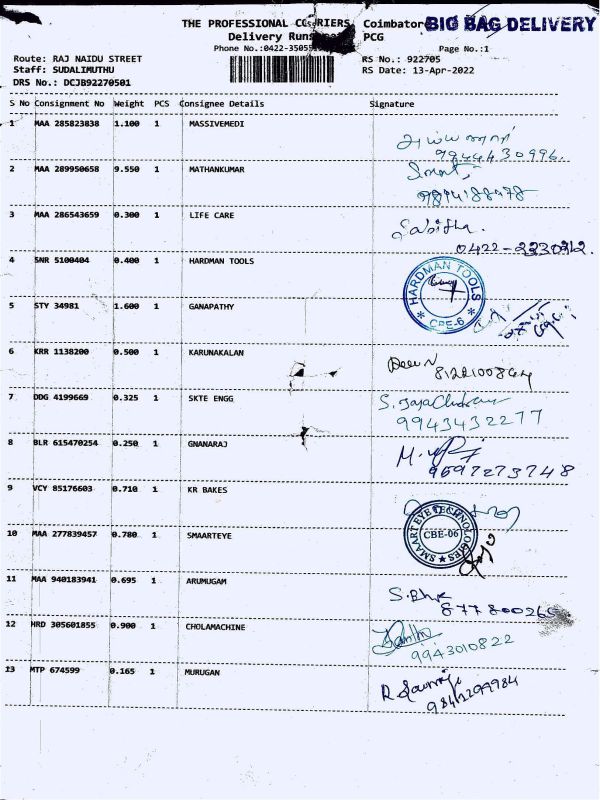 THE PROFESSIONAL COURIERS, Coimbatore BIG BAG DELIVERY
Delivery PCG
Phone No.:0422- Page No.:1
Route: RAJ NAIDU STREET RS No.: 922705
Staff: SUDALIMUTHU RS Date: 13-Apr-2022
DRS No.: DCJB92270501
S No Consignment No Weight PCS Consignee Details Signature
1 MAA 285823838 1.100 1 MASSIVEMEDI
9944430996
2 MAA 289950658 9.550 1 MATHANKUMAR
3 MAA 286543659 0.300 1 LIFE CARE
Sabitha.
4 SNR 5100404 0.400 1 HARDMAN TOOLS
HARDMAN TOOLS
CBE-6
5 STY 34981 1.600 1 GANAPATHY
6 KRR 1138200 0.500 1 KARUNAKALAN
7 DDG 4199669 0.325 1 SKTE ENGG
9943432277
8 BLR 615470254 0.250 1 GNANARAJ
9697273748
9 VCY 85176603 0.710 1 KR BAKES
10 MAA 277839457 0.780 1 SMAARTEYE
SMAART EYE TECHNOLOGIES
CBE-06
11 MAA 940183941 0.695 1 ARUMUGAM
12 HRD 305601855 0.900 1 CHOLAMACHINE
9943010822
13 MTP 674599 0.165 1 MURUGAN